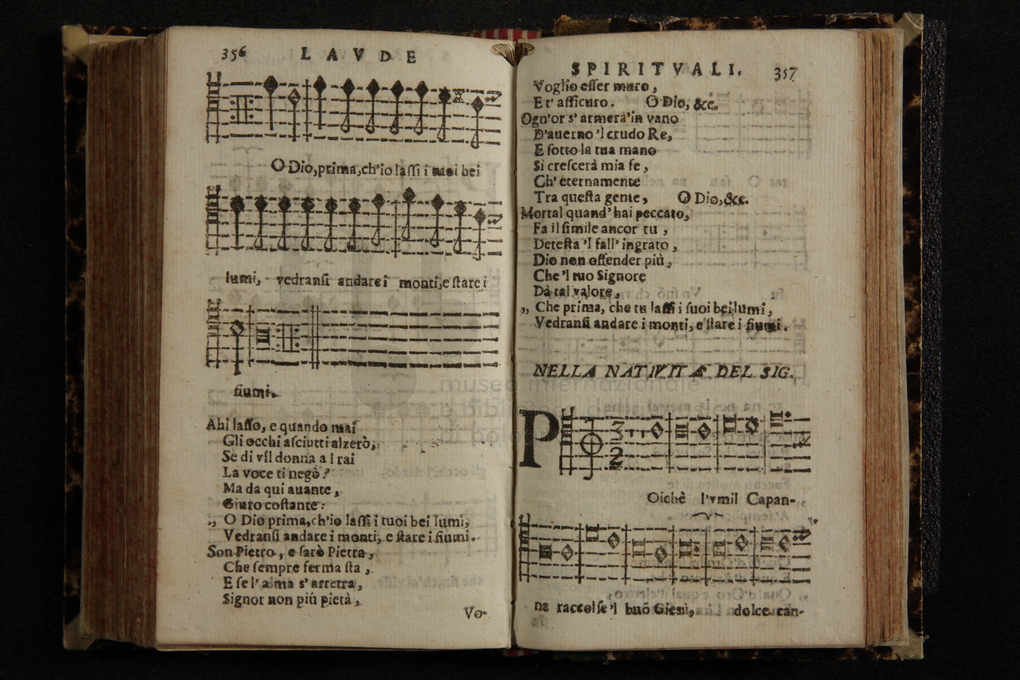 356 LAVDE
O Dio, prima, ch'io lassi i tuoi bei
lumi, vedransi andare i monti, e stare i
fiumi.
Ahi lasso, e quando mai
Gli occhi asciutti alzerò,
Se di vil donna a i rai
La voce ti negò?
Ma da qui auante,
Giuro costante:
„ O Dio prima, ch'io lassi i tuoi bei lumi,
Vedransi andare i monti, e stare i fiumi.
Son Pietro, e sarò Pietra,
Che sempre ferma sta,
E se l'alma s'arretra,
Signor non più pietà,
Vo-
SPIRITVALI. 357
Voglio esser muro,
E t'assicuro. O Dio, &c.
Ogn'or s'armerà'in vano
D'auerno 'l crudo Re,
E sotto la tua mano
Si crescerà mia fe,
Ch'eternamente
Tra questa gente, O Dio, &c.
Mortal quand'hai peccato,
Fa il simile ancor tu,
Detesta 'l fall'ingrato,
Dio non offender più,
Che 'l tuo Signore
Dà tal valore,
„ Che prima, che tu lassi i suoi bei lumi,
Vedransi andare i monti, e stare i fiumi.
NELLA NATIVITÆ DEL SIG.
P
3
2
Oichè l'vmil Capan-
na raccolse 'l buõ Giesù, dolce can-
museo internazionale